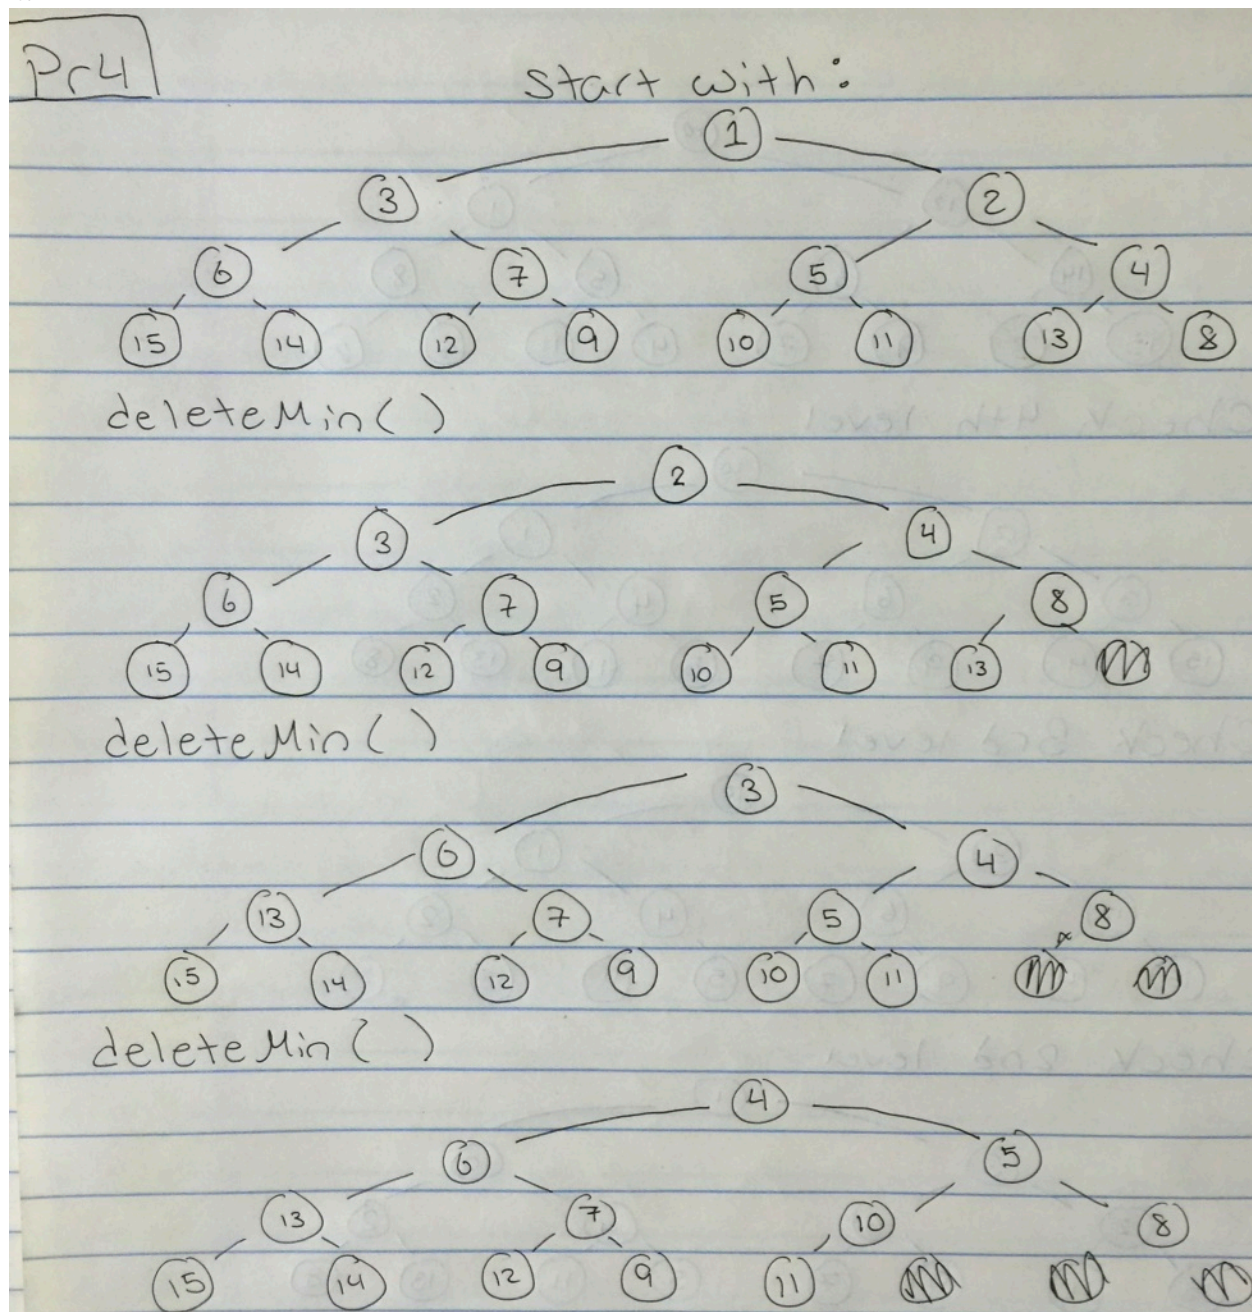 Pr4
Start with:
1
3 2
6 7 5 4
15 14 12 9 10 11 13 8
deleteMin()
2
3 4
6 7 5 8
15 14 12 9 10 11 13
deleteMin()
3
6 4
13 7 5 8
15 14 12 9 10 11
deleteMin()
4
6 5
13 7 10 8
15 14 12 9 11